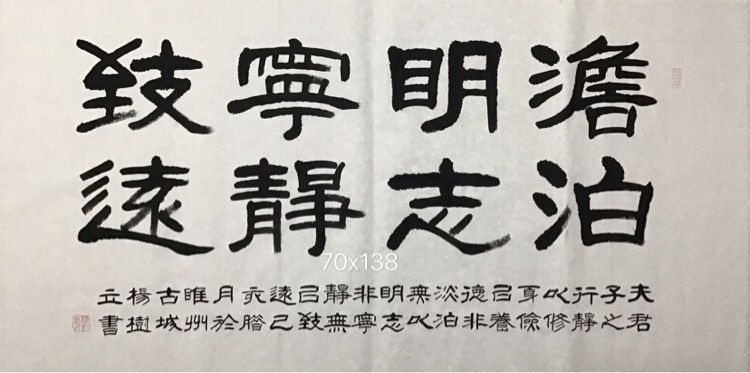 澹泊
明志
寧靜
致遠
夫君
子之
行靜
以修
身儉
以養
德非
淡泊
無以
明志
非寧
靜無
以致
遠己
亥臘
月於
睢州
古城
楊樹
立書
70x138